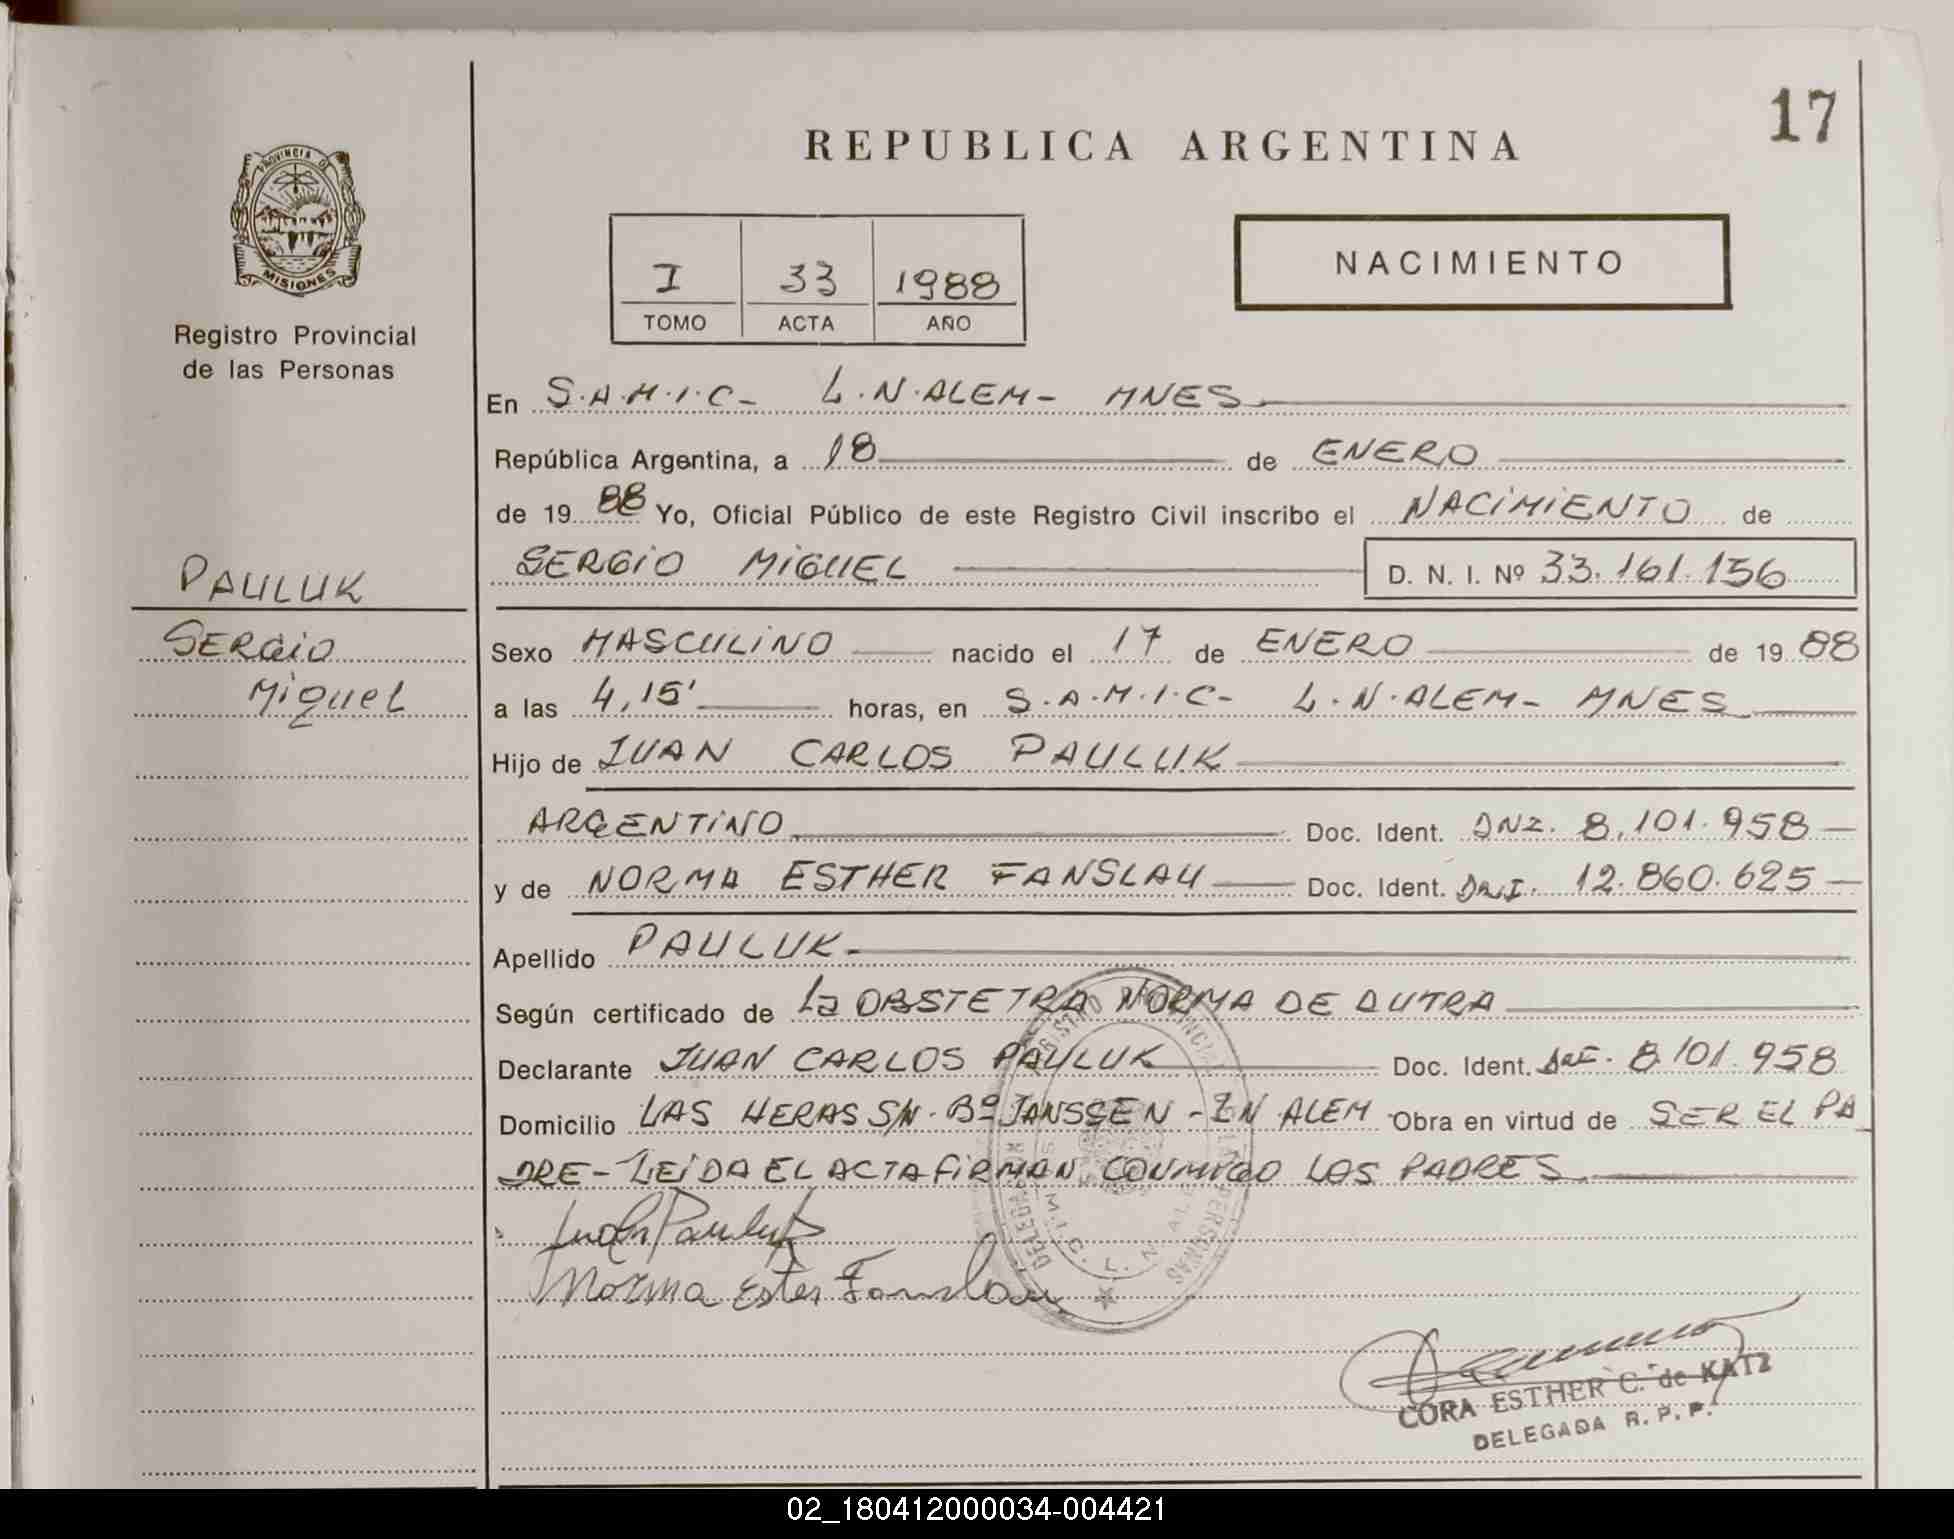 17
REPUBLICA ARGENTINA
PROVINCIA DE
MISIONES
Registro Provincial
de las Personas
I 33 1988
TOMO ACTA AÑO
NACIMIENTO
En S.A.M.I.C- L.N.ALEM- MNES
República Argentina, a 18 de ENERO
de 19 88 Yo, Oficial Público de este Registro Civil inscribo el NACIMIENTO de
SERGIO MIGUEL D. N. I. Nº 33.161.156
PAULUK
SERGIO
MIGUEL
Sexo MASCULINO nacido el 17 de ENERO de 19 88
a las 4,15' horas, en S.A.M.I.C- L.N.ALEM- MNES
Hijo de JUAN CARLOS PAULUK
ARGENTINO Doc. Ident. DNI. 8.101.958
y de NORMA ESTHER FANSLAU Doc. Ident. DNI. 12.860.625
Apellido PAULUK
Según certificado de La OBSTETRA NORMA DE DUTRA
Declarante JUAN CARLOS PAULUK Doc. Ident. 8.101.958
Domicilio LAS HERAS S/N. Bº JANSSEN - LN ALEM Obra en virtud de SER EL PA
DRE - LEIDA EL ACTA FIRMAN CONMIGO LOS PADRES
Pauluk
Norma Ester Fanslau
REGISTRO PROVINCIAL DE LAS PERSONAS
DELEGACION
S.A.M.I.C. L. N. ALEM
CORA ESTHER C. de KATZ
DELEGADA R. P. P.
02_180412000034-004421